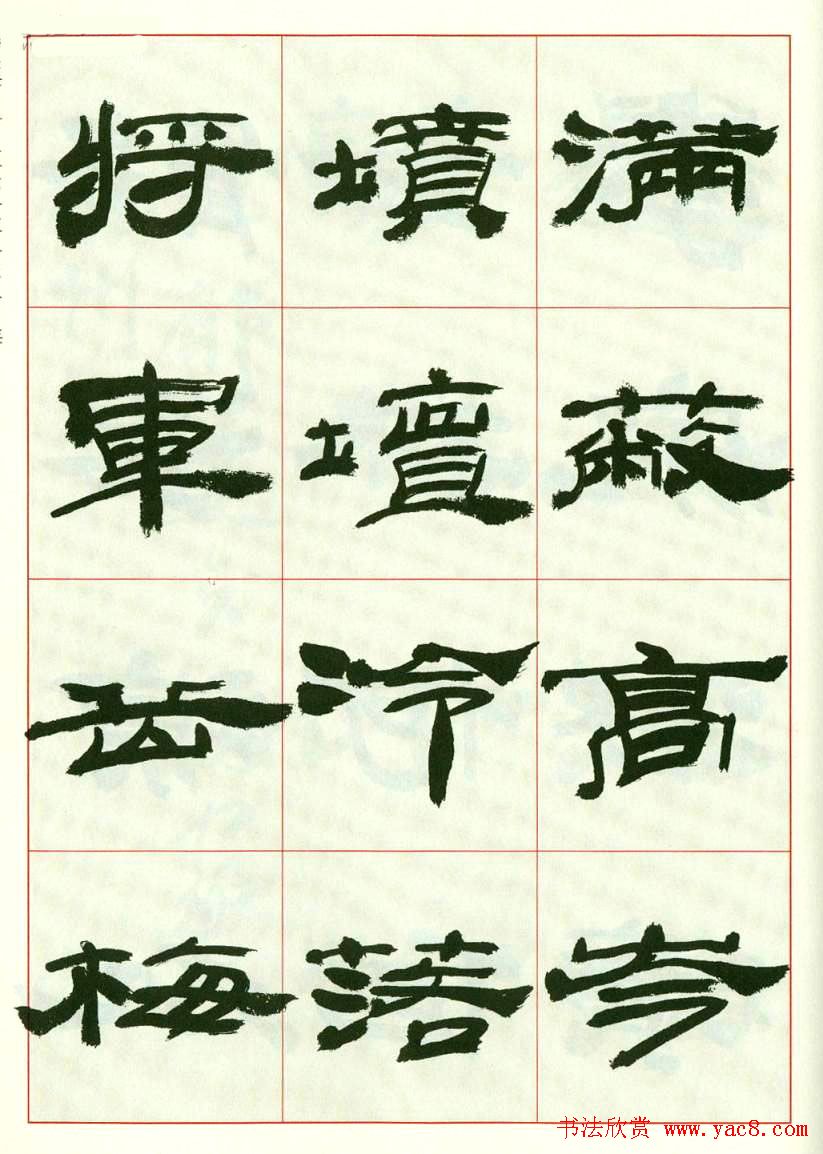 滿蔽高岑
墳壇冷落
將軍岳梅
书法欣赏 www.yac8.com